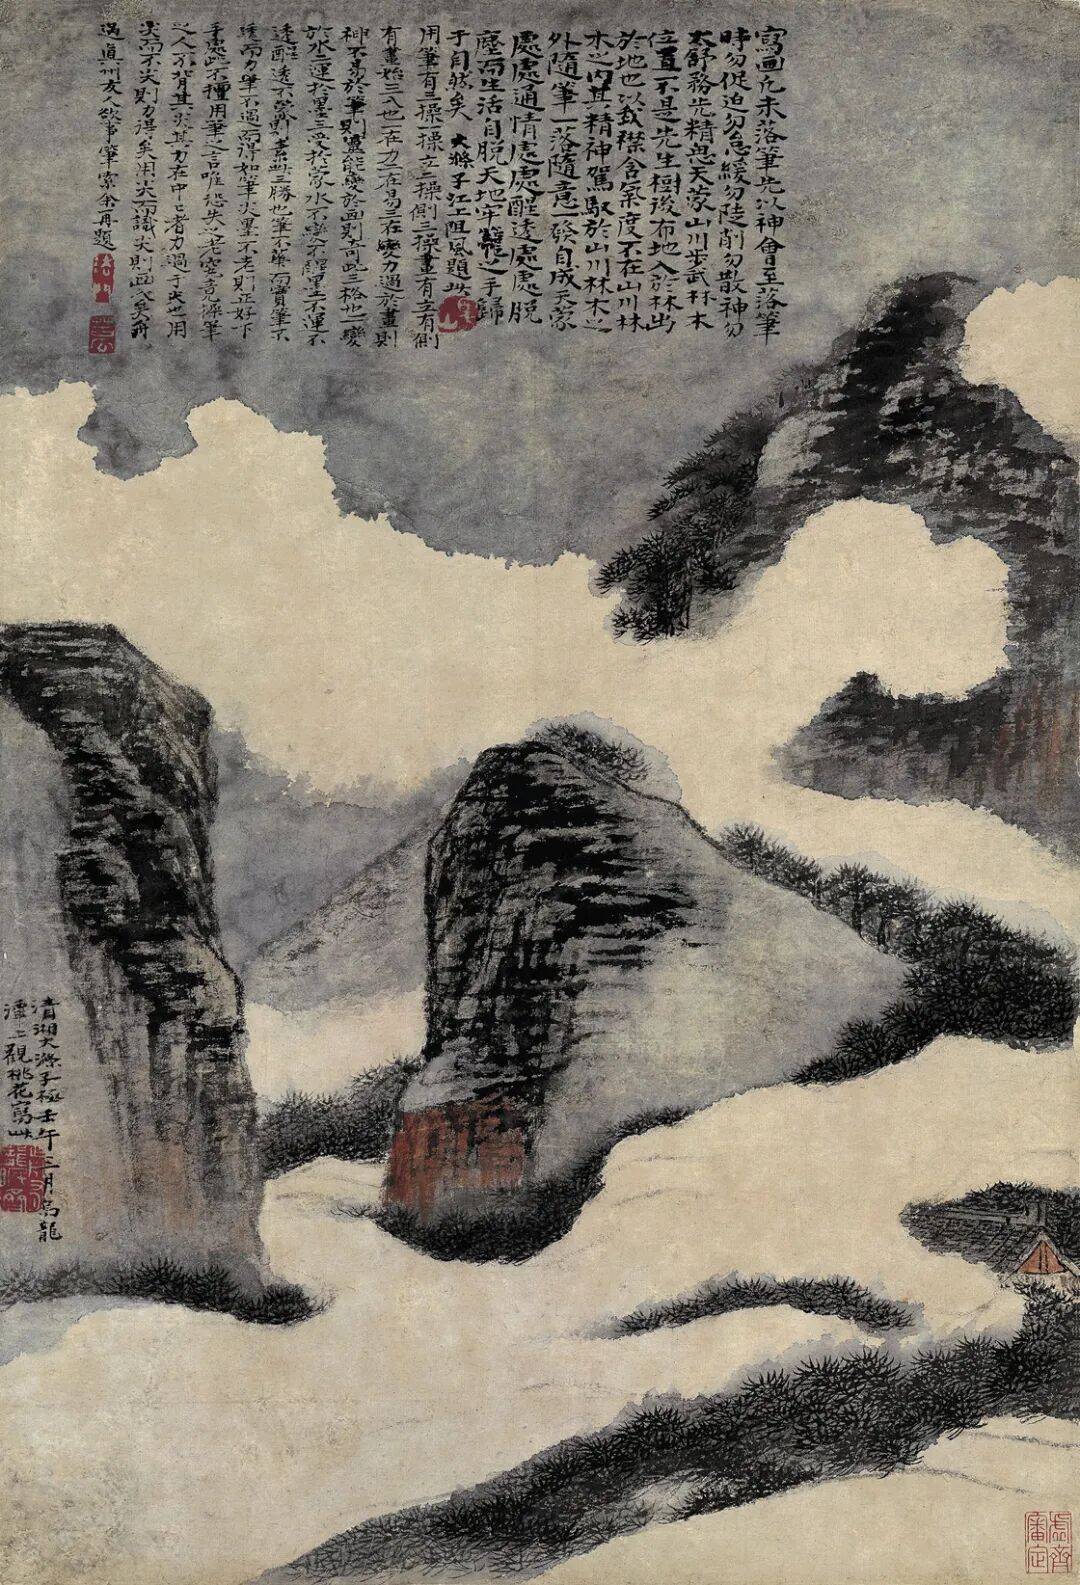 寫画凡未落筆先以神會至落筆
時勿促迫勿怠緩勿陡削勿散神勿
太舒務先精思天蒙山川步武林木
位置不是先生樹後布地入於林出
於地也以我襟含氣度不在山川林
木之內其精神駕馭於山川林木之
外隨筆一落隨意一發自成天蒙
處處通情處處醒透處處脫
塵而生活自脫天地牢籠之手歸
于自然矣 大滌子江上阻風題此
用筆有三操一操立二操側三操畫有立有側
有畫始三入也一在力二在易三在變力過於畫則
神不易於筆則靈能變於画則奇此三格也一變
於水二運於墨三受於蒙水不變不醒墨不運不
透醒透不蒙則素此三勝也筆不華而實筆不
透而力筆不過而得如筆尖墨不老則正好下
手處此不擅用筆之言唯恐失之老究竟操筆
之人不背其尖其力在中中者力過于尖也用
尖而不尖則力得矣用尖而識尖則画入矣舟
過真州友人欲事筆索余再題
清湘大滌子極壬午三月烏龍
潭上觀桃花寫此
虛齋
審定